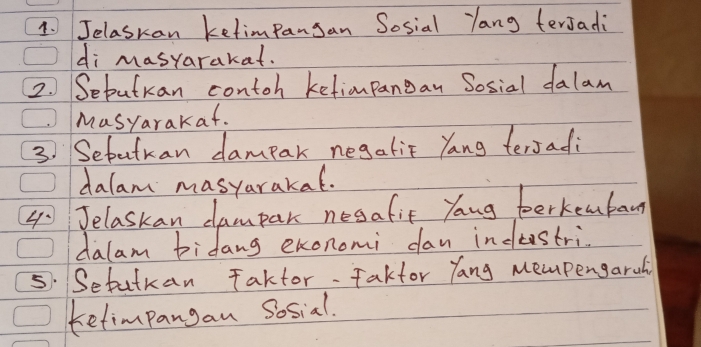 1. Jelaskan ketimpangan Sosial Yang terjadi
di masyarakat.
2. Sebutkan contoh ketimpangan Sosial dalam
Masyarakat.
3. Sebutkan dampak negatif Yang terjadi
dalam masyarakat.
4. Jelaskan dampak negatif Yang berkembang
dalam bidang ekonomi dan industri.
5. Sebutkan Faktor - Faktor Yang Mempengaruhi
ketimpangan Sosial.